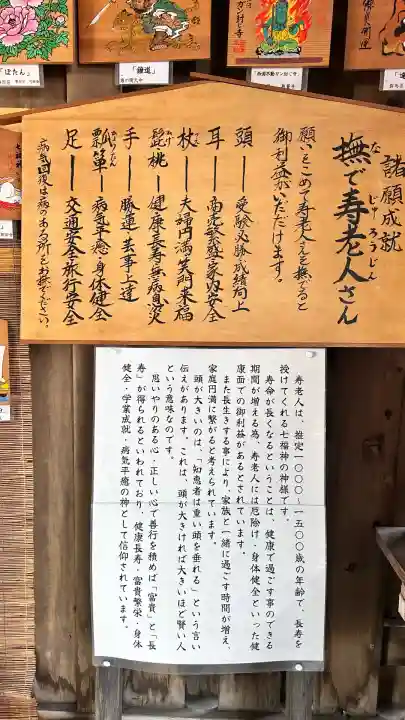 「ぼたん」
「鍾道」
諸願成就
撫で寿老人さん
な
じゅろうじん
願いをこめて寿老人さんを撫でると
御利益がいただけます。
頭ー受験必勝成績向上
耳ー商売繁盛家内安全
杖ー夫婦円満笑門来福
髭・桃ー健康長寿無病息災
手ー勝運・芸事上達
瓢箪ー病気平癒・身体健全
足ー交通安全・旅行安全
病気回復は病のある所をお撫で下さい。
寿老人は、推定一〇〇〇~一五〇〇歳の年齢で、長寿を
授けてくれる七福神の神様です。
寿命が長くなるということは、健康で過ごす事のできる
期間が増える為、寿老人には厄除け・身体健全といった健
康面での御利益があるとされています。
また長生きする事により、家族と一緒に過ごす時間が増え、
家庭円満に繋がると考えられています。
頭が大きいのは、「知恵者は重い頭を垂れる」という言い
伝えがあります。これは、頭が大きければ大きいほど賢い人
という意味なのです。
思いやりのある心・正しい心で善行を積めば「富貴」と「長
寿」が得られるといわれており、健康長寿・富貴繁栄・身体
健全・学業成就・病気平癒の神として信仰されています。